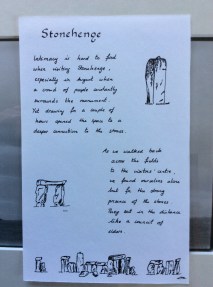 Stonehenge
Intimacy is hard to find
when visiting Stonehenge,
especially in August when
a crowd of people constantly
surrounds the monument.
Yet drawing for a couple of
hours opened the space to a
deeper connection to the stones.
As we walked back
across the fields
to the visitors' centre,
we found ourselves alone
but for the strong
presence of the stones
They sat in the distance
like a council of
elders.